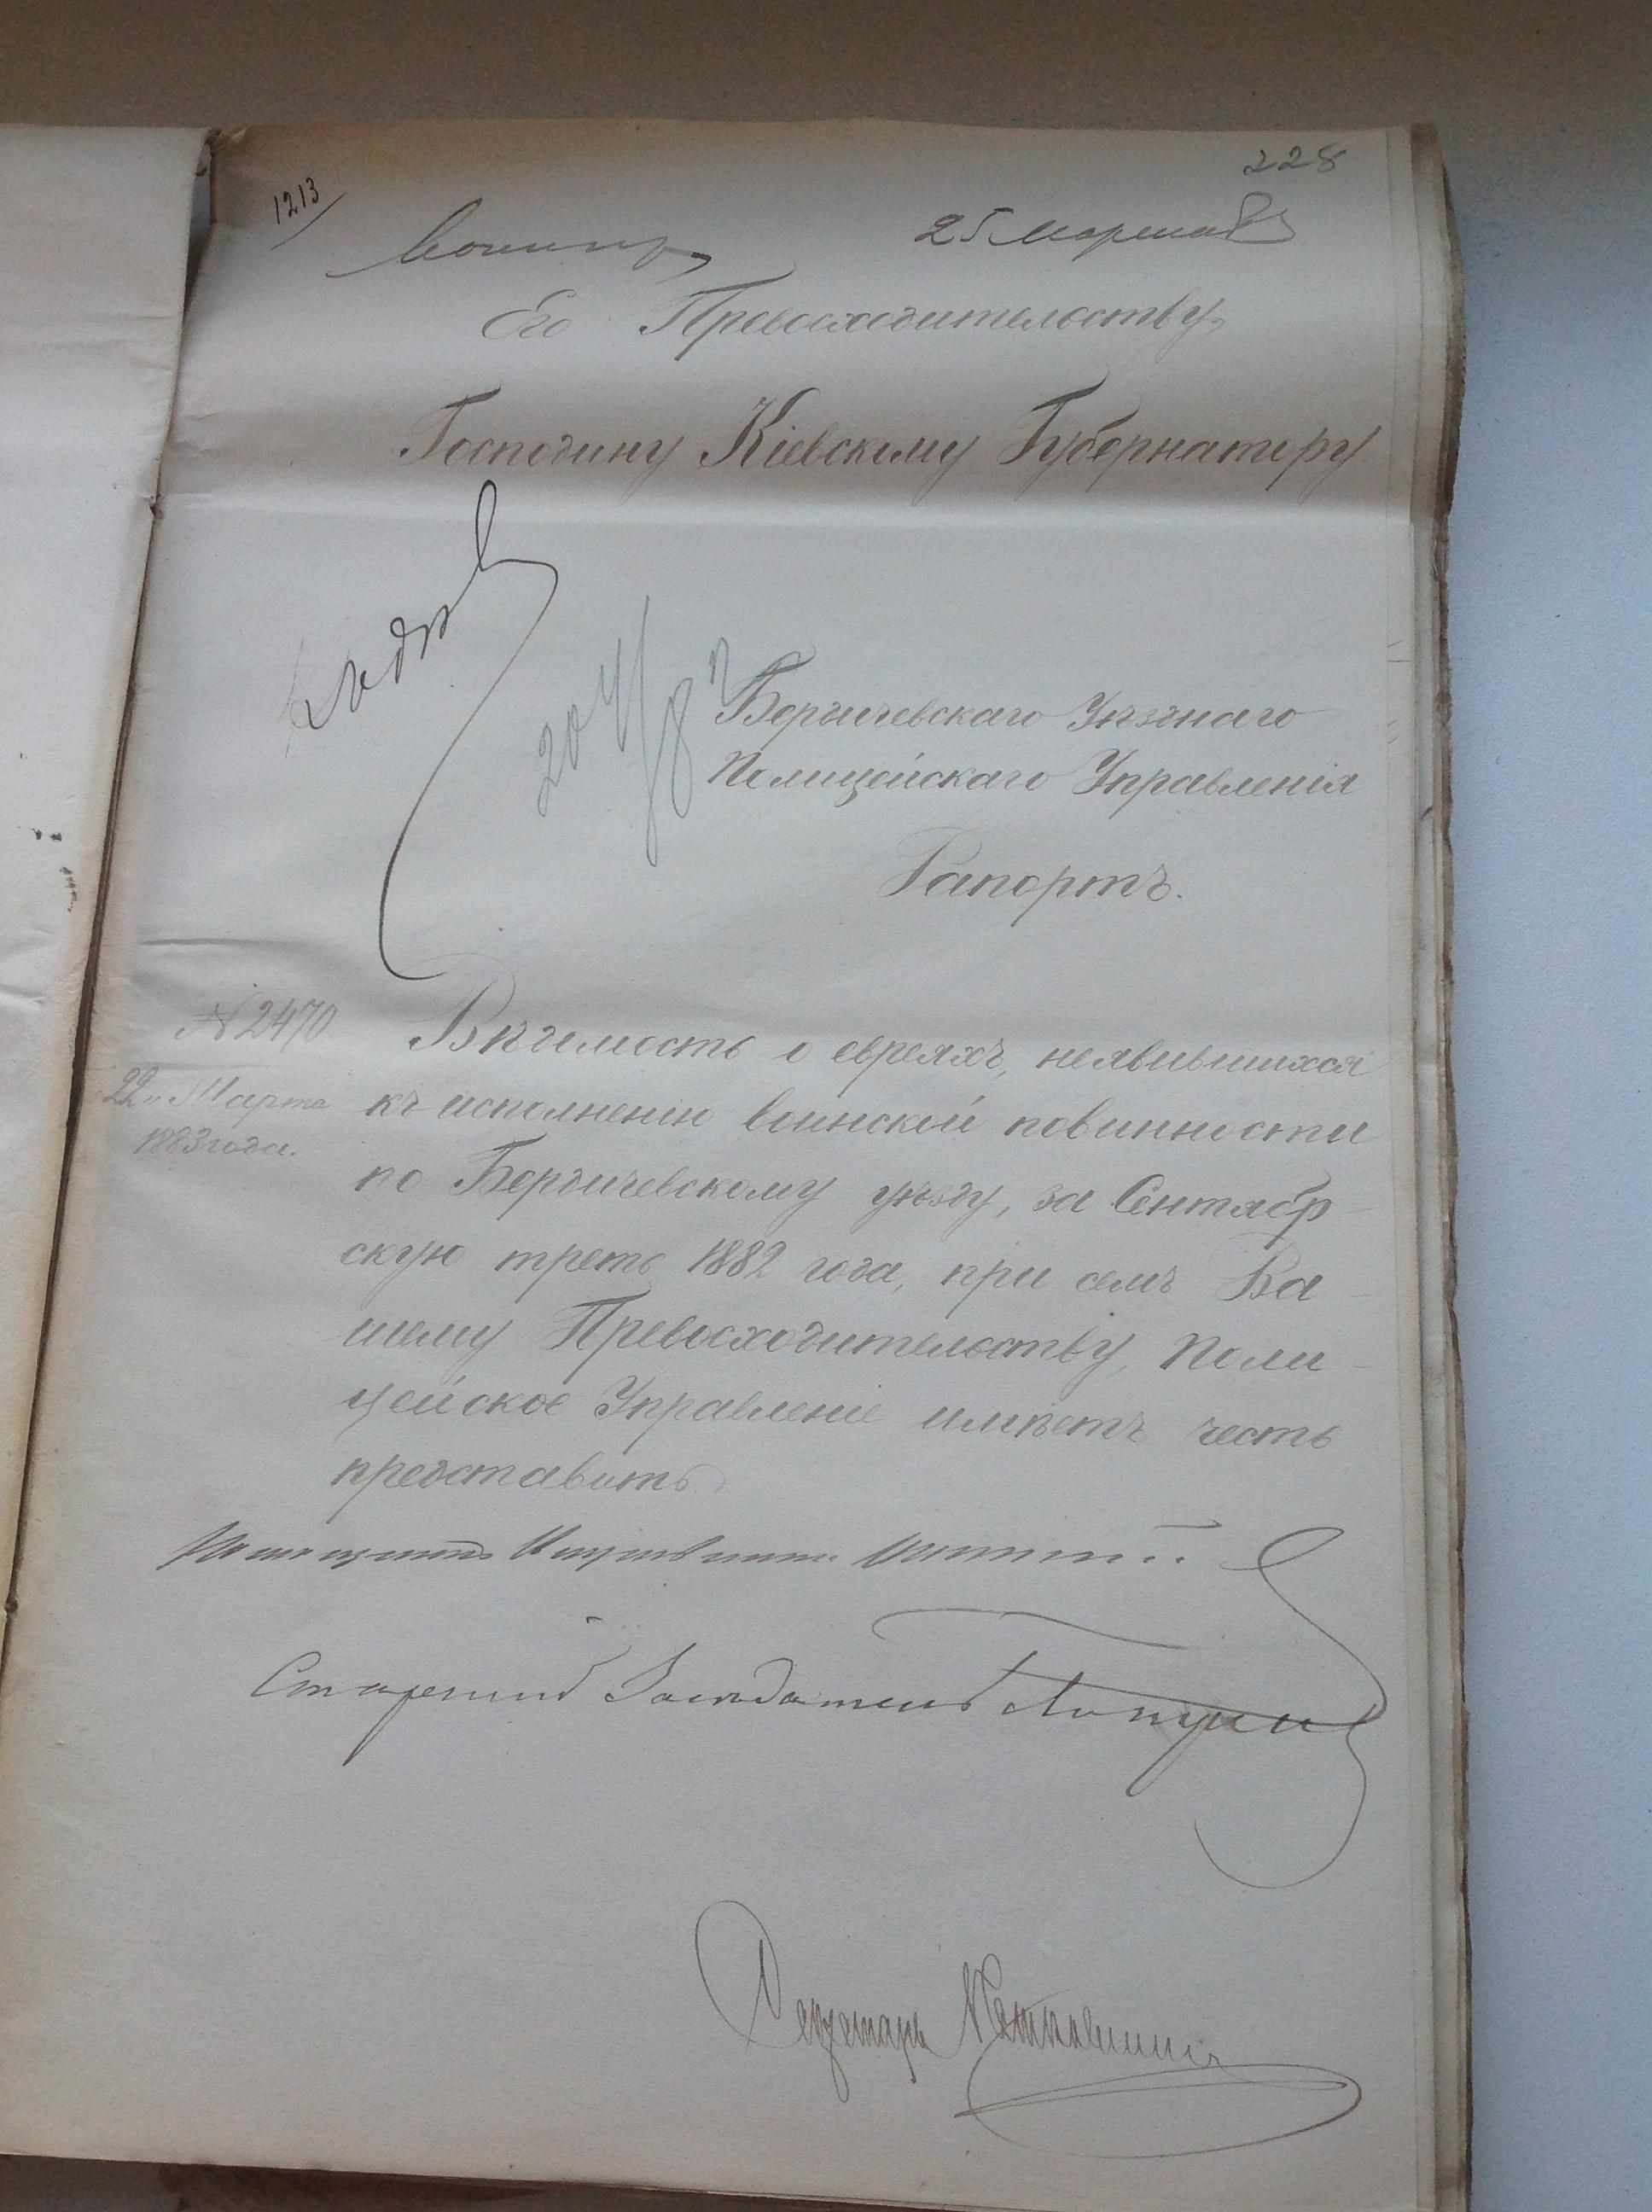 228
1213
25 Марта 83
Его Превосходительству,
Господину Кіевскому Губернатору
Бердичевскаго Уѣзднаго
Полицейскаго Управленія
Рапортъ.
№ 2470
22„ Марта
1883 года.
Вѣдомость о евреяхъ, неявившихся
къ исполненію воинской повинности
по Бердичевскому уѣзду, за Сентябр-
скую треть 1882 года, при семъ Ва-
шему Превосходительству, Поли-
цейское Управленіе имѣетъ честь
представить
Исправника
Старшій Засѣдатель
Секретарь